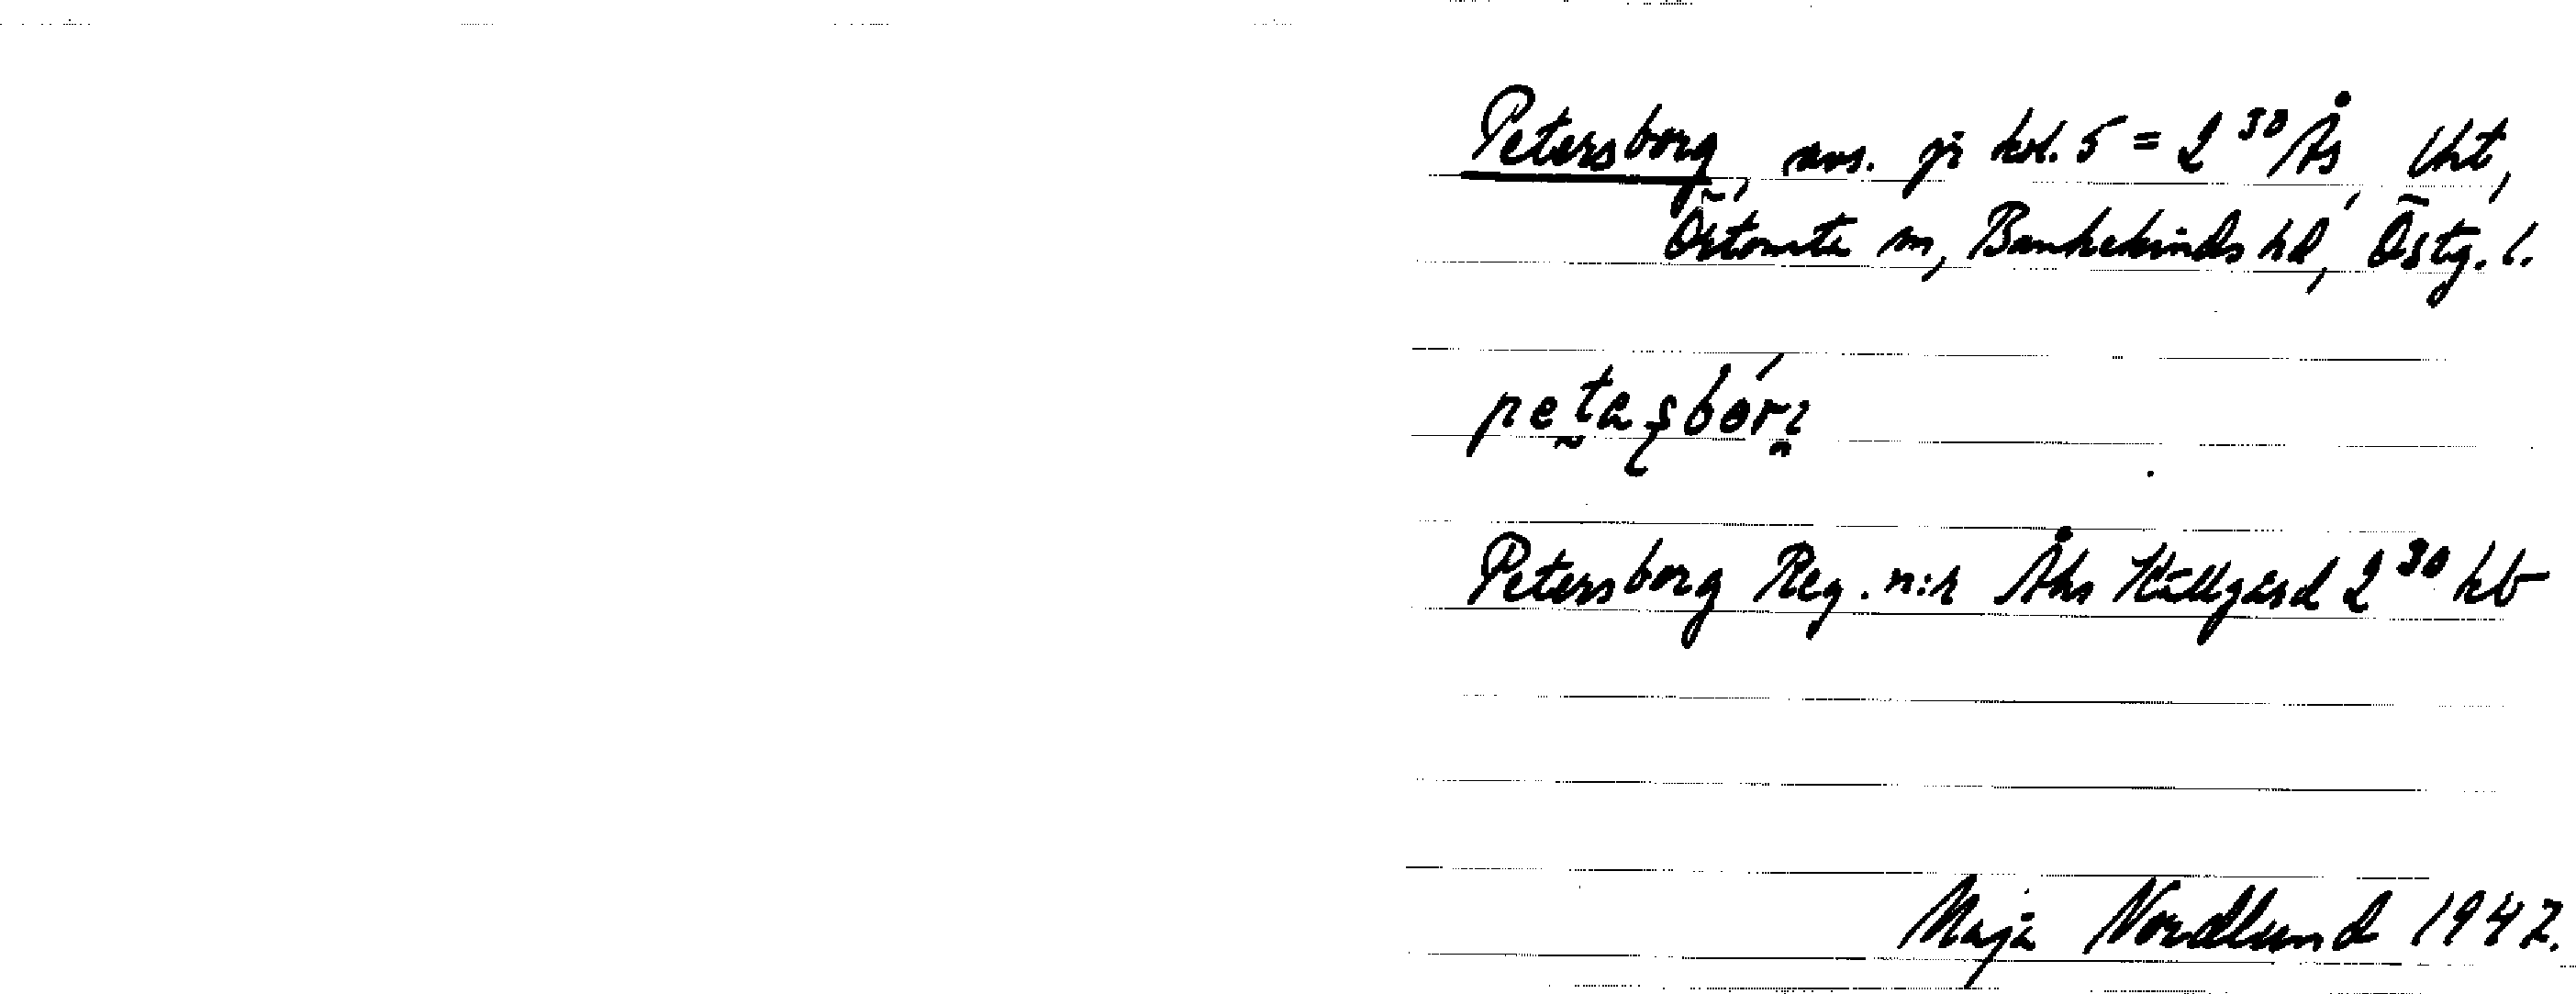 Petersborg, avs. jr kol. 5 = 2³⁰ Ås, Vkt,
Örtomta sn, Bankekinds hd, Östg. l.
petaʂbórɪ
Petersborg Reg. n:r Åks Källgård 2³⁰ kb
Maja Nordlund 1947.